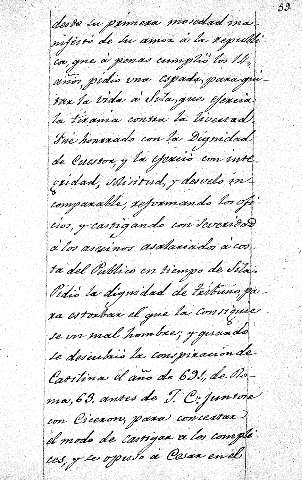 59.
desde su primera mosedad ma-
nifestó de su amor á la republi
ca, que á penas cumplió los 14
años, pedio una espada, para qui
tar la vida á Sila, que exercia
la tirania contra la livertad,
fue honrado con la Dignidad
de Cuestor, y la exerció con inte
gridad, Misitud, y desvelo in
comparable, reformando los ofi
cios, y castigando con severidad
á los asesinos asalariados á cos
ta del Publico en tiempo de Sila.
Pidió la dignidad de tribuno, pa
ra estorbar el que la consiguie
se un mal hombre; y quando
se descubrió la conspiracion de
Catilina el año de 691, de Ro-
ma, 63, antes de J. C., juntose
con Ciceron, para concertar
el modo de castigar a los compli
ces, y se opuso á Cesar en el